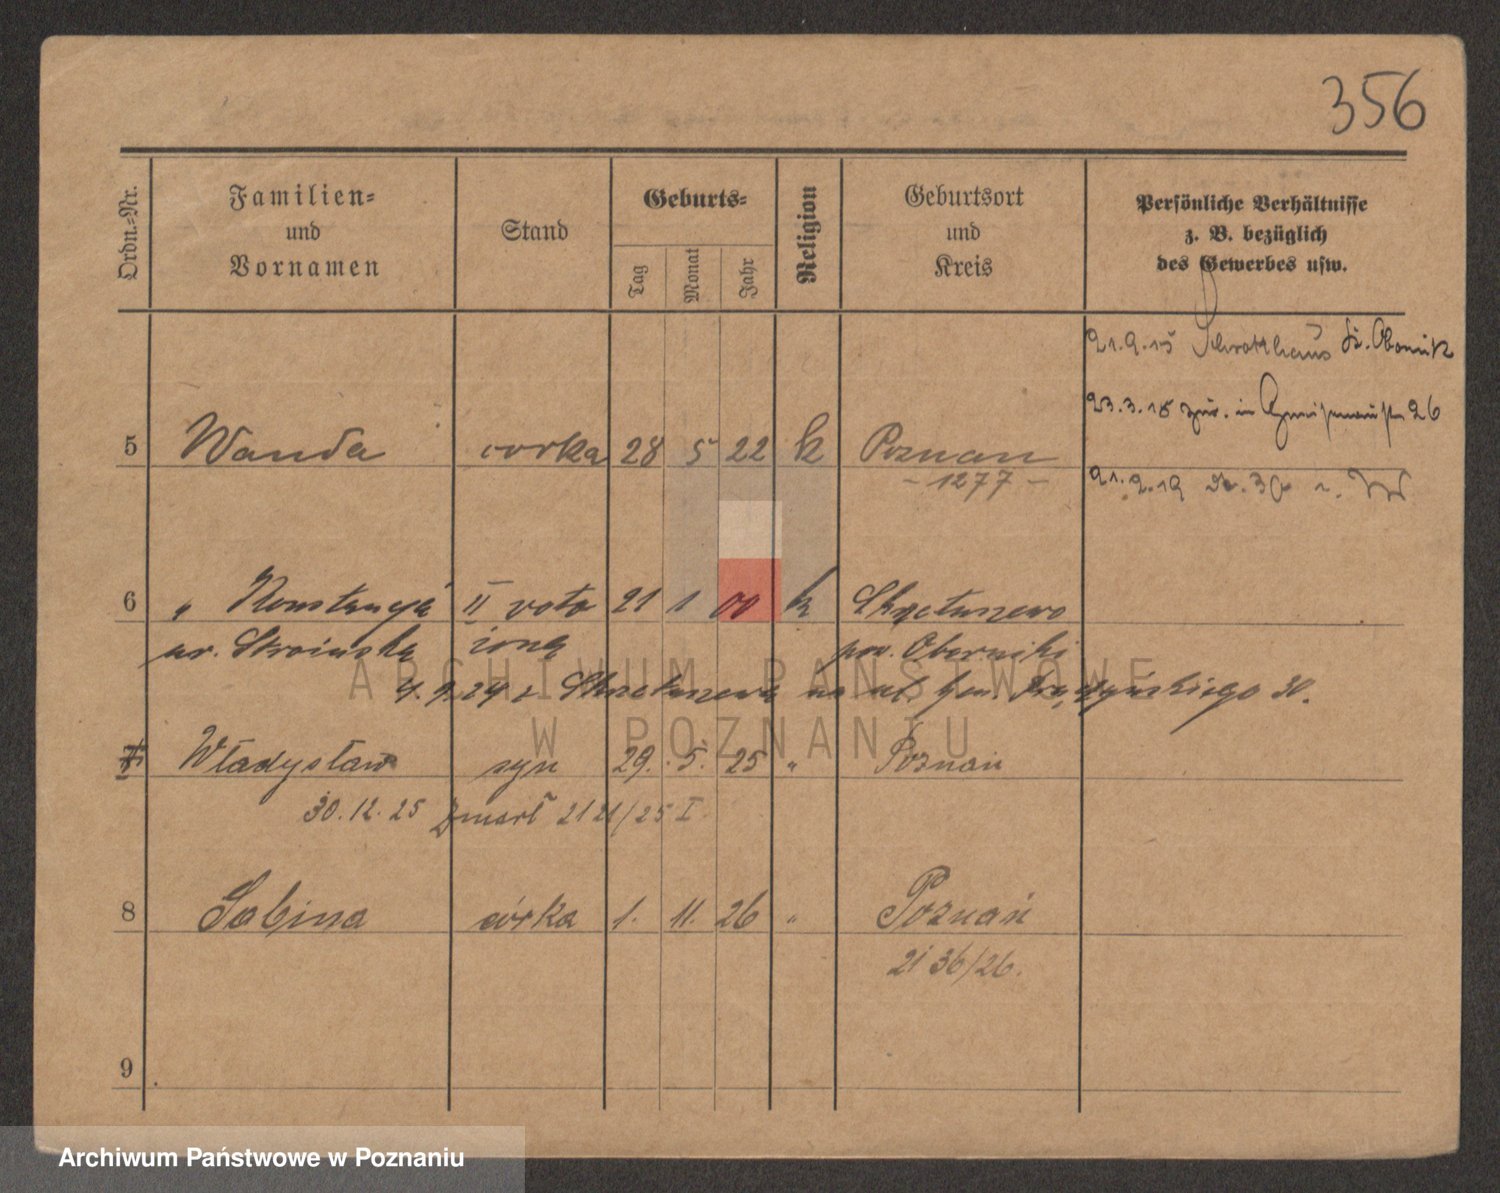 356
Ordn.-Nr.
Familien-
und
Vornamen
Stand
Geburts-
Tag
Monat
Jahr
Religion
Geburtsort
und
Kreis
Persönliche Verhältnisse
z. B. bezüglich
des Gewerbes usw.
21.9.15 Schrotthaus Kr. Obornik
23.3.18 zur. in Gneisenaustr 26
5 Wanda corka 28 5 22 k Poznan
- 1277 -
21.2.19
6 " Konstancja II voto 21 1 00 k Skrętuszewo
ur. Stroińska żona pow. Oborniki
4.9.24 z Skrzetuszewa na ul. Gen. Prądzyńskiego 30.
7 Władysław syn 29. 5. 25 " Poznań
30.12.25 Zmarł 2121/25 I
8 Sabina córka 1. 11. 26 " Poznań
2136/26.
9
ARCHIWUM PAŃSTWOWE
W POZNANIU
Archiwum Państwowe w Poznaniu